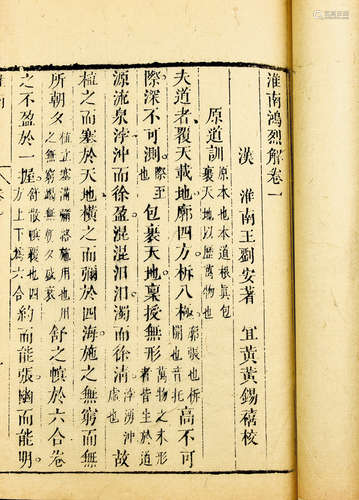 淮南鴻烈解卷一
漢　淮南王劉安著　宜黃黃錫禧校
原道訓 原本也本道根眞包裹天地以歷萬物也
夫道者覆天載地廓四方柝八極 廓張也柝開也 高不可
際深不可測 也際至也 包裹天地稟授無形 萬物之未形者皆生於道 故
源流泉浡沖而徐盈混混汩汩濁而徐淸 浡湧沖虛也 故
植之而塞於天地橫之而彌於四海施之無窮而無
所朝夕 植立塞滿彌絡施用也用之無窮竭無朝夕盛衰 舒之幎於六合卷
之不盈於一握 舒散幎覆也四方上下爲六合 約而能張幽而能明